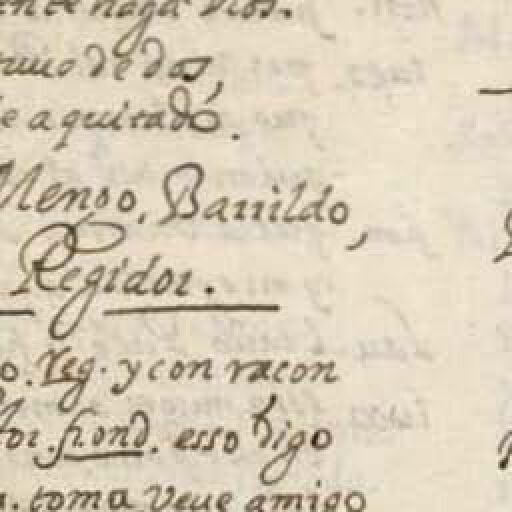 haga Dios.
tuuo de dos,
e a quitado.
Mengo, Barrildo,
Regidor.
o. Reg. y con racon
tor. frond. esso digo
a. toma Veue amigo